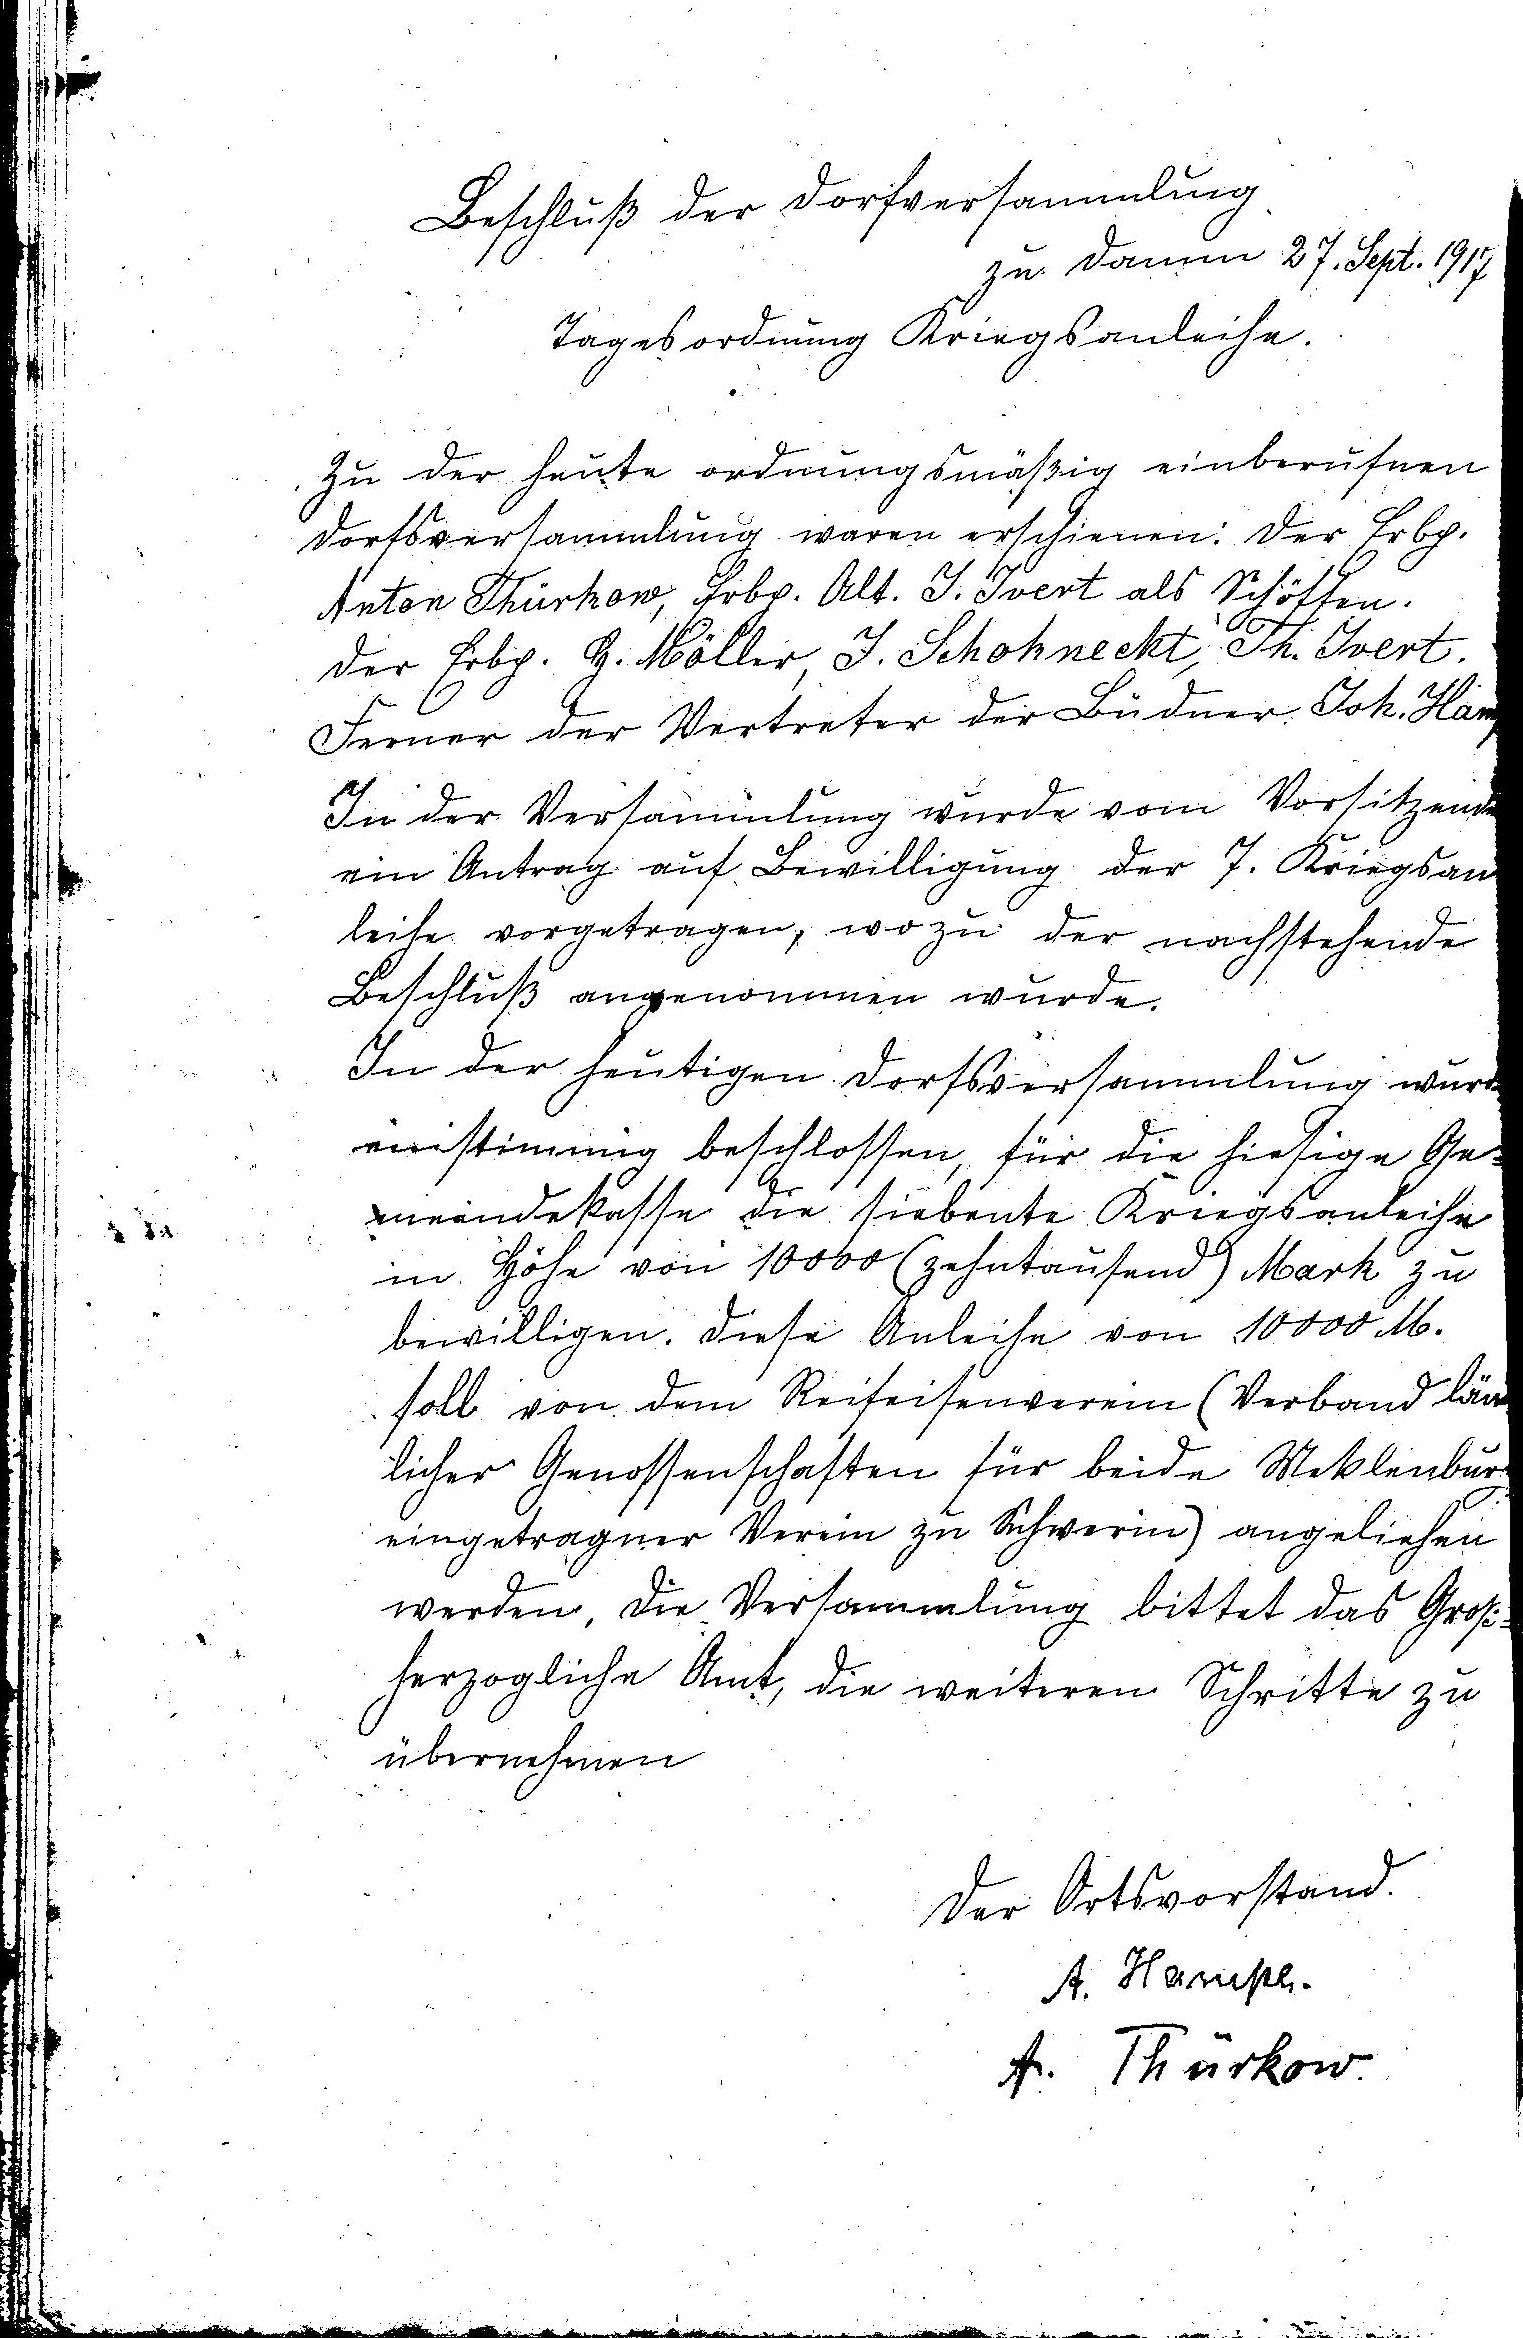 Beschluß der Dorfversammlung
zu Damm 27. Sept. 1917
Tagesordnung Kriegsanleihe.
Zu der heute ordnungsmäßig einberufnen
Dorfsversammlung waren erschienen: Der Erbp.
Anton Thürkow, Erbp. Alt. J. Ivert als Schöffen.
Der Erbp. H. Möller, J. Schohneckt, Th. Ivert.
Ferner der Vertreter der Büdner Joh. Ham
In der Versammlung wurde vom Vorsitzende
ein Antrag auf Bewilligung der 7. Kriegsan
leihe vorgetragen, wozu der nachstehende
Beschluß angenommen wurde.
In der heutigen Dorfsversammlung wurde
einstimmig beschlossen, für die hiesige Ge-
meindekasse die siebente Kriegsanleihe
in Höhe von 10000 (zehntausend) Mark zu
bewilligen. Diese Anleihe von 10000 M.
soll von dem Reifeisenverein (Verband län
licher Genossenschaften für beide Meklenbur
eingetragner Verein zu Schwerin) angeliehen
werden, Die Versammlung bittet das Groß-
herzogliche Amt, die weiteren Schritte zu
übernehmen
Der Ortsvorstand.
A. Hampe.
A. Thürkow.